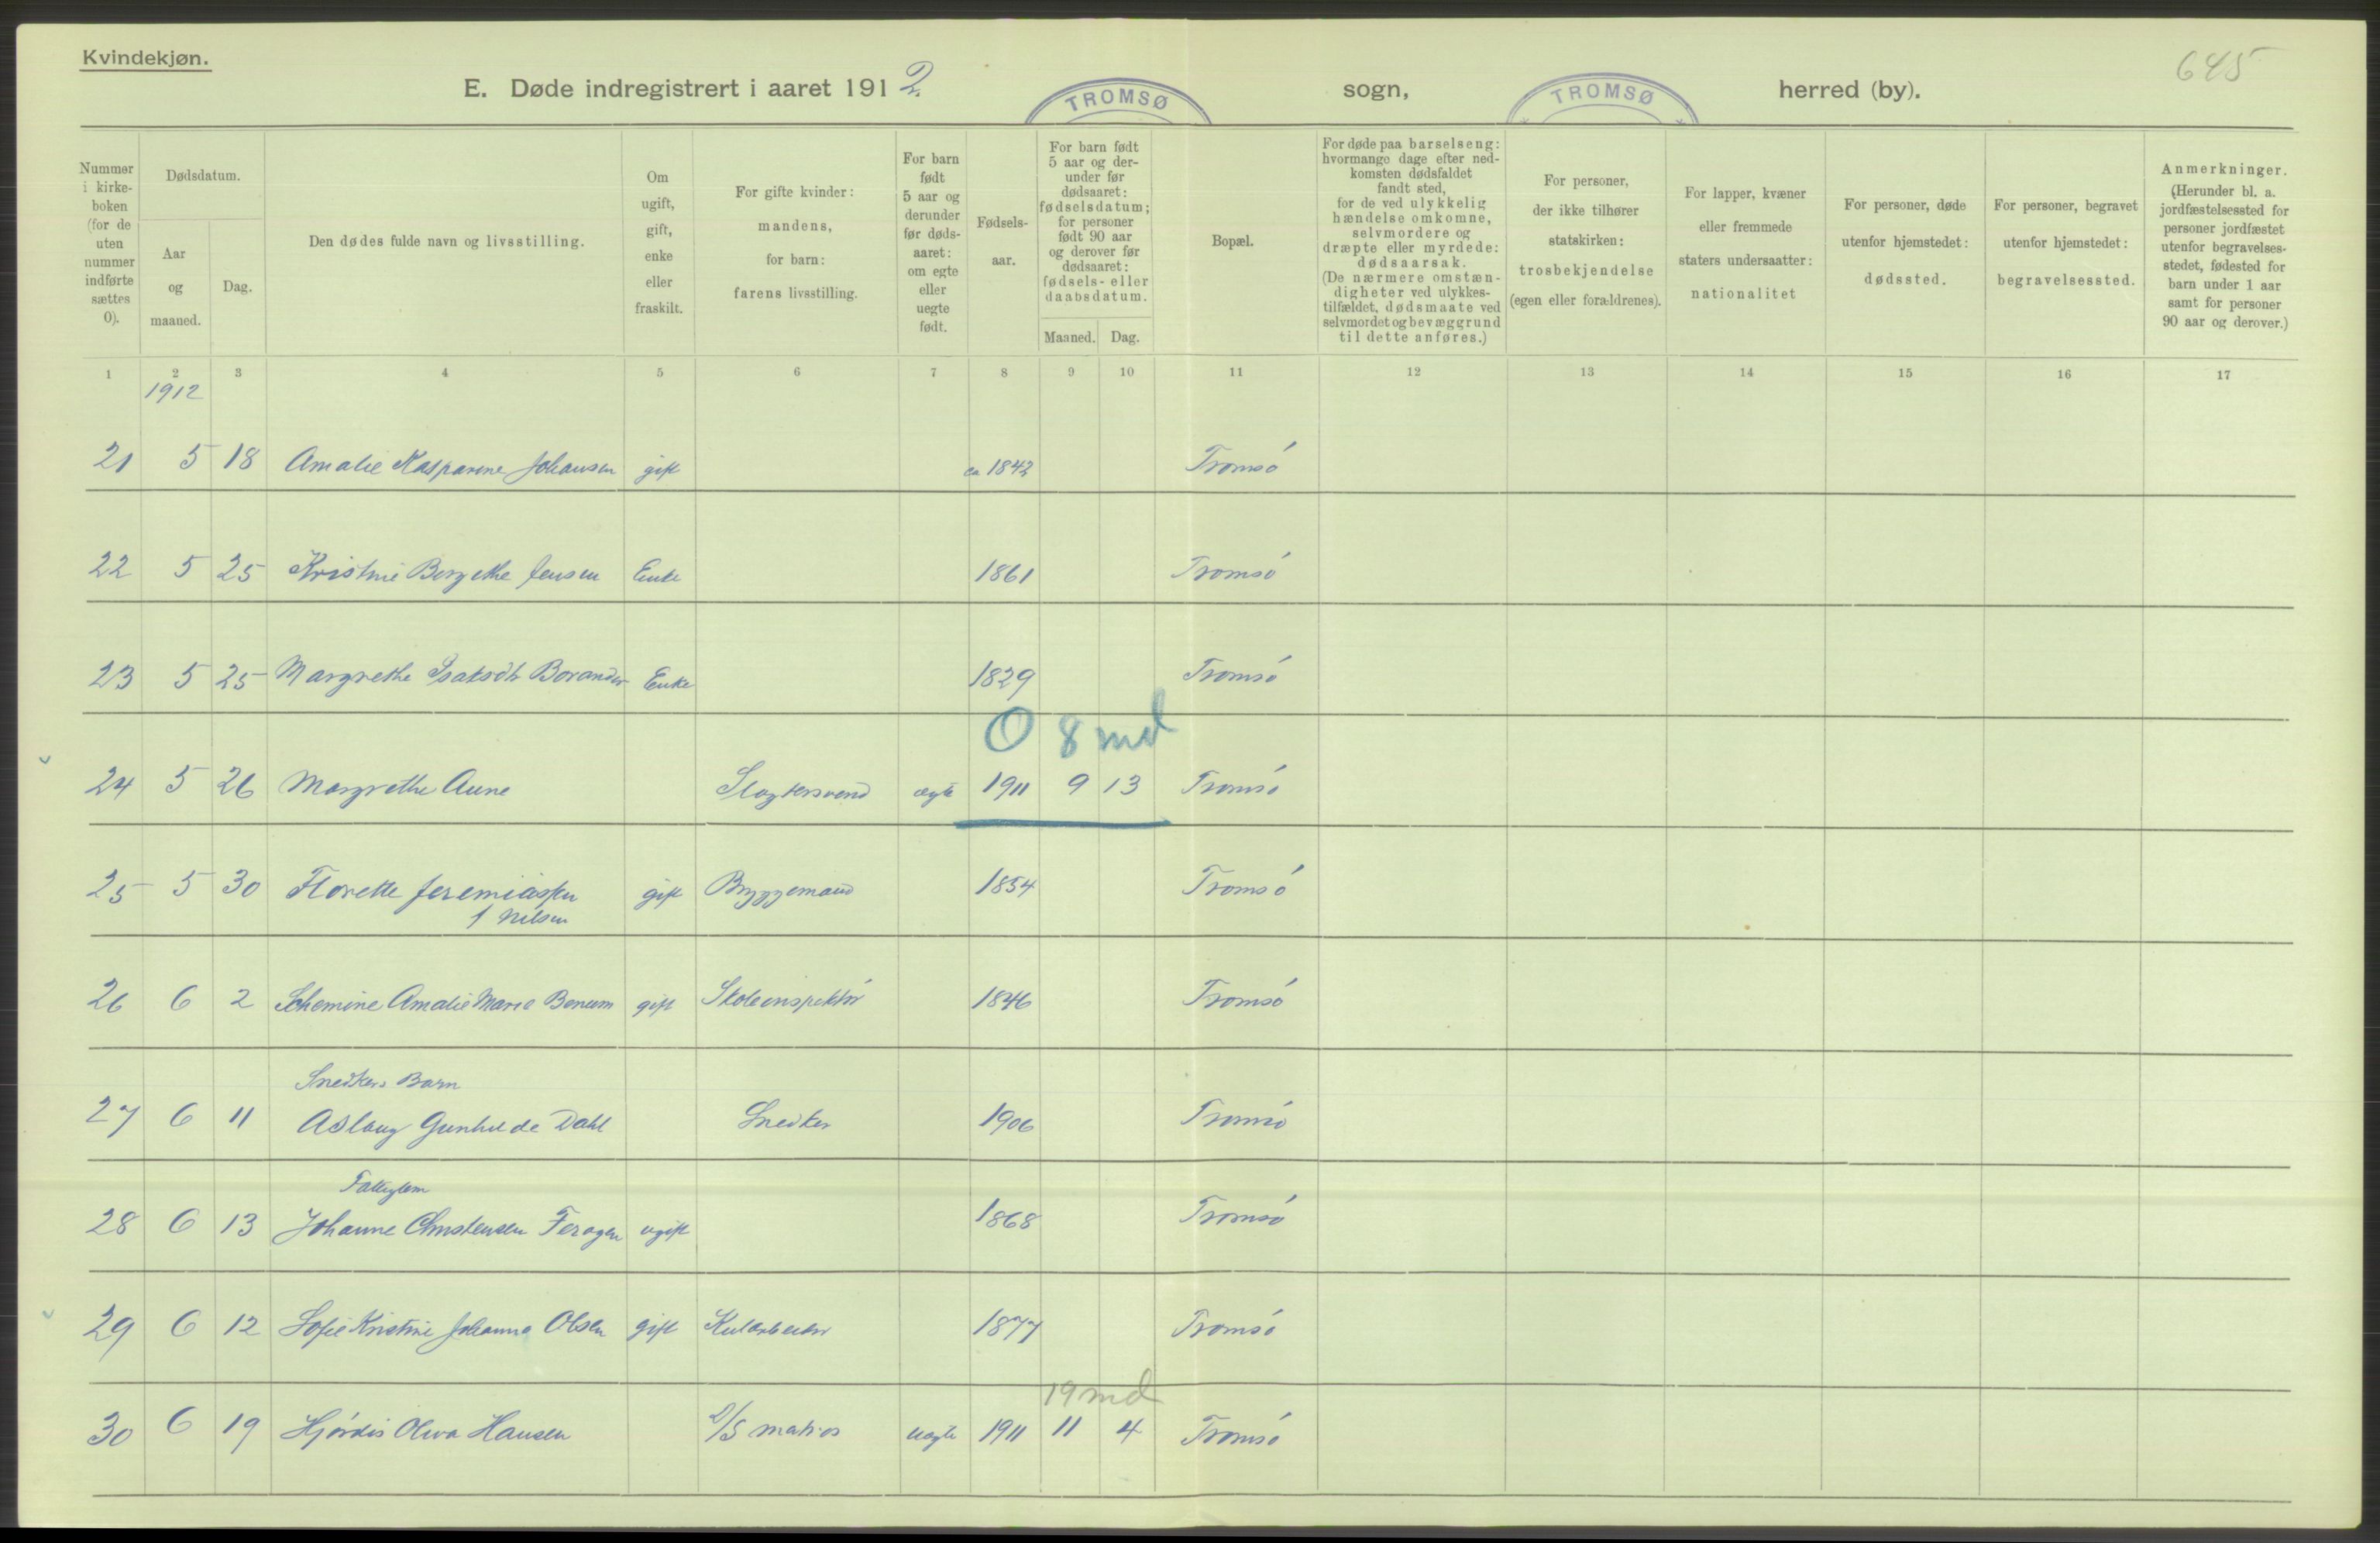 Kvindekjøn.
645
E. Døde indregistrert i aaret 1912 TROMSØ sogn, TROMSØ herred (by).
Nummer i kirke-boken (for de uten nummer indførte sættes 0).
Dødsdatum.
Aar og maaned.
Dag.
Den dødes fulde navn og livsstilling.
Om ugift, gift, enke eller fraskilt.
For gifte kvinder: mandens, for barn: farens livsstilling.
For barn født 5 aar og derunder før døds-aaret: om egte eller uegte født.
Fødsels-aar.
For barn født 5 aar og der-under før dødsaaret: fødselsdatum; for personer født 90 aar og derover før dødsaaret: fødsels- eller daabsdatum.
Maaned. Dag.
Bopæl.
For døde paa barselseng: hvormange dage efter ned-komsten dødsfaldet fandt sted, for de ved ulykkelig hændelse omkomne, selvmordere og dræpte eller myrdede: dødsaarsak. (De nærmere omstæn-digheter ved ulykkes-tilfældet, dødsmaate ved selvmordet og bevæggrund til dette anføres.)
For personer, der ikke tilhører statskirken: trosbekjendelse (egen eller forældrenes).
For lapper, kvæner eller fremmede staters undersaatter: nationalitet
For personer, døde utenfor hjemstedet: dødssted.
For personer, begravet utenfor hjemstedet: begravelsessted.
Anmerkninger. (Herunder bl. a. jordfæstelsessted for personer jordfæstet utenfor begravelses-stedet, fødested for barn under 1 aar samt for personer 90 aar og derover.)
1 2 3 4 5 6 7 8 9 10 11 12 13 14 15 16 17
1912
21 5 18 Amalie Kasparine Johansen gift ca 1842 Tromsø
22 5 25 Kristine Bergethe Jensen Enke 1861 Tromsø
23 5 25 Margrethe Isaksdtr Borander Enke 1829 Tromsø
0 8 md
24 5 26 Margrethe Aune Slagtersvend ægte 1911 9 13 Tromsø
25 5 30 Florette Jeremiassen gift Bryggemand 1854 Tromsø
f Nilsen
26 6 2 Amalie Marie gift Skoleinspektør 1846 Tromsø
Snedkers Barn
27 6 11 Aslaug Gunhilde Dahl Snedker 1906 Tromsø
Fattiglem
28 6 13 Johanne Christensen Feragen ugift 1868 Tromsø
29 6 12 Sofie Kristine Johanna Olsen gift Kularbeider 1877 Tromsø
19 md
30 6 19 Hjørdis Oliva Hansen D/S matros uægte 1911 11 4 Tromsø